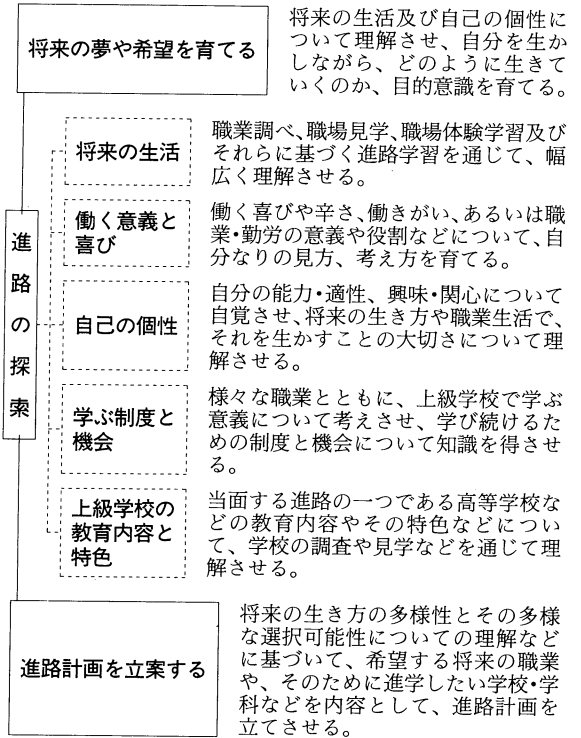 将来の夢や希望を育てる
将来の生活及び自己の個性に
ついて理解させ、自分を生か
しながら、どのように生きて
いくのか、目的意識を育てる。
進路の探索
将来の生活
職業調べ、職場見学、職場体験学習及び
それらに基づく進路学習を通じて、幅
広く理解させる。
働く意義と
喜び
働く喜びや辛さ、働きがい、あるいは職
業・勤労の意義や役割などについて、自
分なりの見方、考え方を育てる。
自己の個性
自分の能力・適性、興味・関心について
自覚させ、将来の生き方や職業生活で、
それを生かすことの大切さについて理
解させる。
学ぶ制度と
機会
様々な職業とともに、上級学校で学ぶ
意義について考えさせ、学び続けるた
めの制度と機会について知識を得させ
る。
上級学校の
教育内容と
特色
当面する進路の一つである高等学校な
どの教育内容やその特色などについ
て、学校の調査や見学などを通じて理
解させる。
進路計画を立案する
将来の生き方の多様性とその多様
な選択可能性についての理解など
に基づいて、希望する将来の職業
や、そのために進学したい学校・学
科などを内容として、進路計画を
立てさせる。